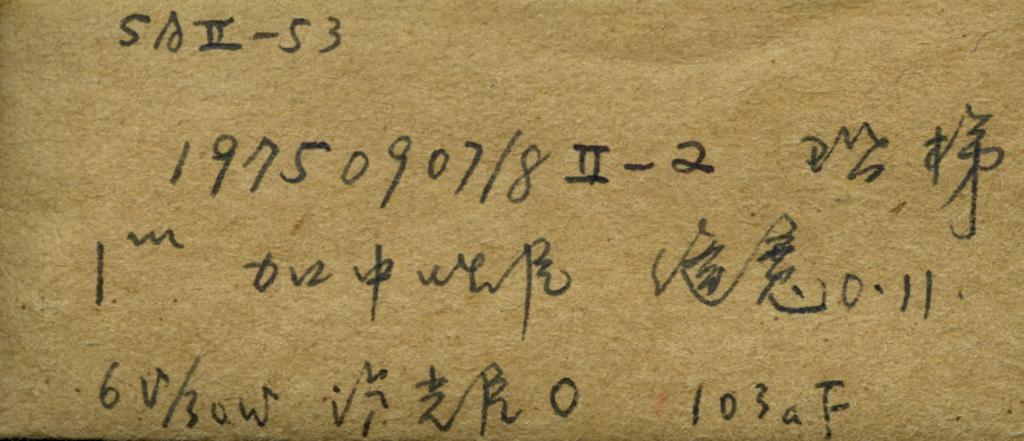 SAⅡ-53
19750907/8 Ⅱ-2 阶梯
1ᵐ 加中性片 缝宽0.11.
6V/30W 滤光片0 103aF